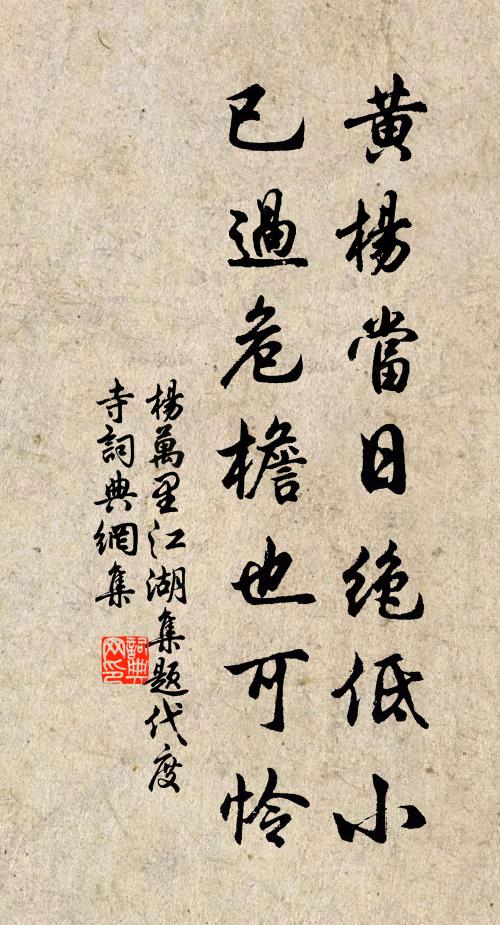 黄楊當日絶低小
已過危檐也可怜
楊萬里江湖集題代度
寺詞典網集
詞典网印